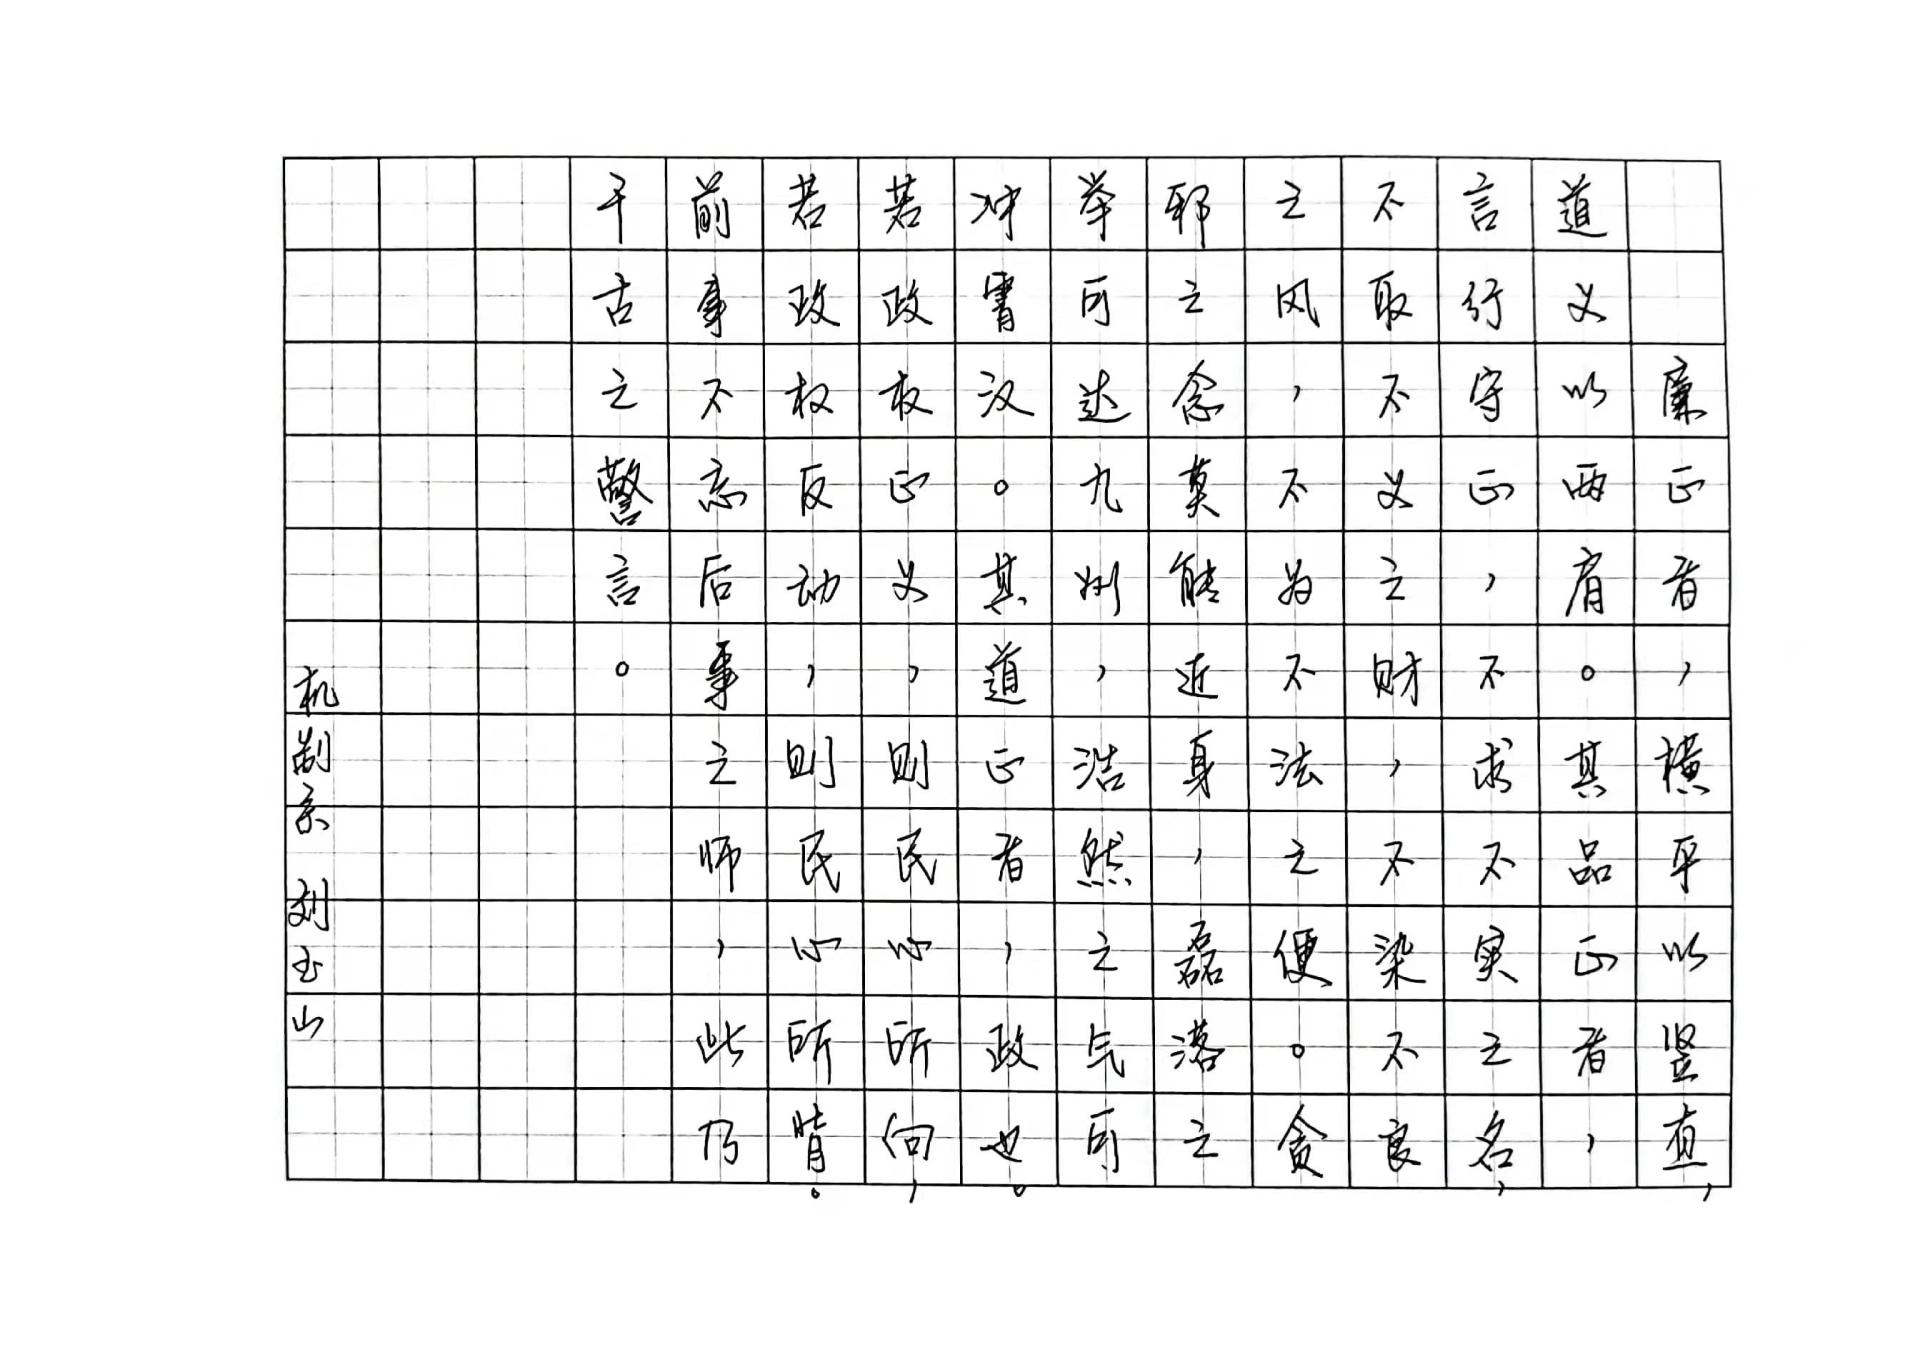 廉正者，横平以竖直，
道义以两肩。其品正者，
言行守正，不求不实之名，
不取不义之财，不染不良
之风，不为不法之便。贪
邪之念莫能近身，磊落之
举可达九州，浩然之气可
冲霄汉。其道正者，政也。
若政权正义，则民心所向，
若政权反动，则民心所背。
前事不忘后事之师，此乃
千古之警言。
机制系 刘玉山